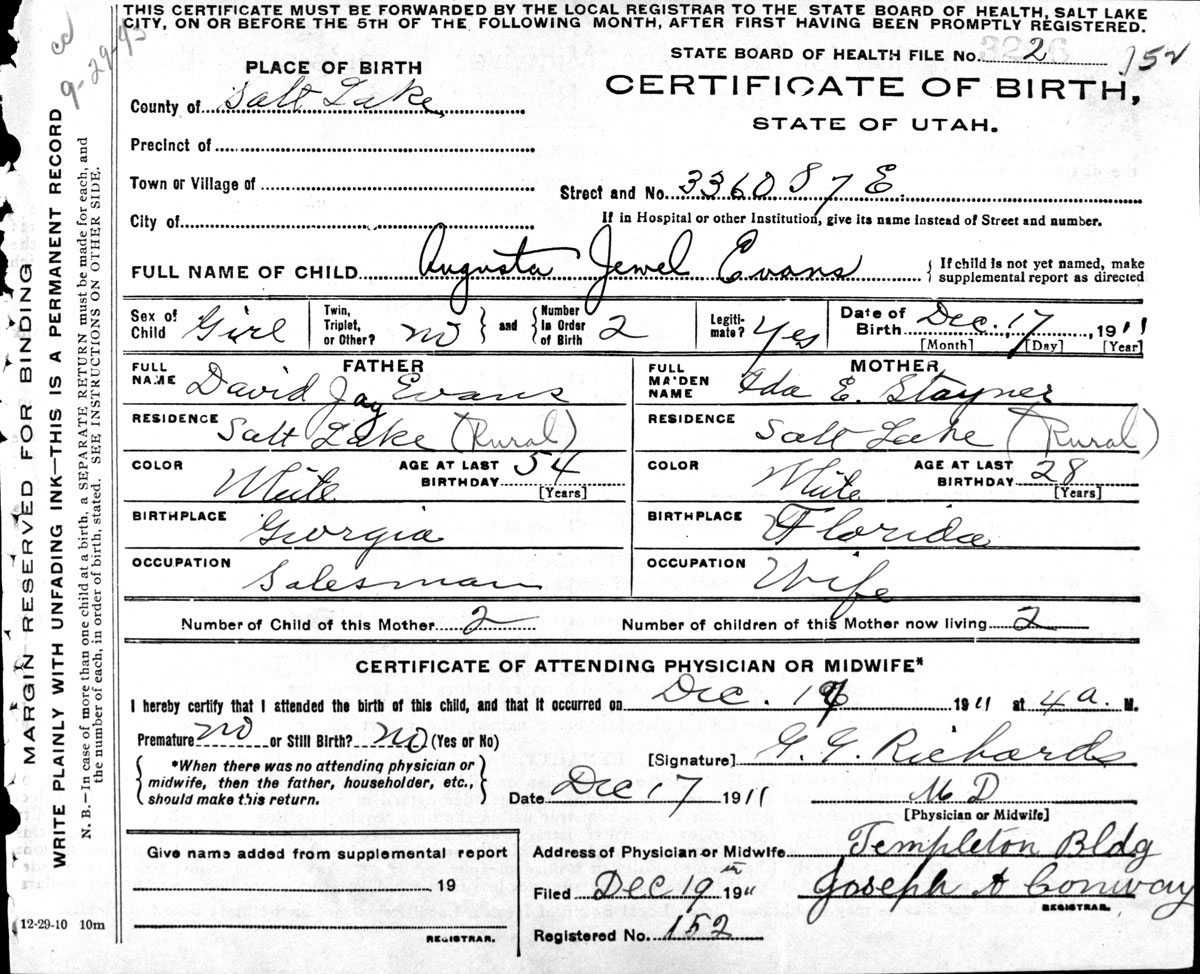 THIS CERTIFICATE MUST BE FORWARDED BY THE LOCAL REGISTRAR TO THE STATE BOARD OF HEALTH, SALT LAKE
CITY, ON OR BEFORE THE 5TH OF THE FOLLOWING MONTH, AFTER FIRST HAVING BEEN PROMPTLY REGISTERED.
cd
9-29-43
STATE BOARD OF HEALTH FILE No. 2 152
PLACE OF BIRTH
CERTIFICATE OF BIRTH,
STATE OF UTAH.
County of Salt Lake
Precinct of
Town or Village of
Street and No. 3360 S 7 E.
City of
If in Hospital or other Institution, give its name instead of Street and number.
FULL NAME OF CHILD Augusta Jewel Evans
{ If child is not yet named, make
supplemental report as directed
Sex of Child Girl
Twin, Triplet, or Other? no } and { Number In Order of Birth 2
Legiti-mate? Yes
Date of Birth Dec. 17, 1911
[Month] [Day] [Year]
FATHER
FULL NAME David Jay Evans
RESIDENCE Salt Lake (Rural)
COLOR White AGE AT LAST BIRTHDAY 54
[Years]
BIRTHPLACE Georgia
OCCUPATION Salesman
MOTHER
FULL MAIDEN NAME Ida E. Stayner
RESIDENCE Salt Lake (Rural)
COLOR White AGE AT LAST BIRTHDAY 28
[Years]
BIRTHPLACE Florida
OCCUPATION Wife
Number of Child of this Mother 2 Number of children of this Mother now living 2
CERTIFICATE OF ATTENDING PHYSICIAN OR MIDWIFE*
I hereby certify that I attended the birth of this child, and that it occurred on Dec. 17 1911 at 4 a. M.
Premature no or Still Birth? no (Yes or No)
[Signature] G. G. Richards
{ *When there was no attending physician or
midwife, then the father, householder, etc.,
should make this return. }
Date Dec 17 1911 M D
[Physician or Midwife]
Give name added from supplemental report
19
REGISTRAR.
Address of Physician or Midwife Templeton Bldg
Filed Dec 19 1911 Joseph A Conway
REGISTRAR.
Registered No. 152
12-29-10 10m
MARGIN RESERVED FOR BINDING
WRITE PLAINLY WITH UNFADING INK—THIS IS A PERMANENT RECORD
N. B.—In case of more than one child at a birth, a SEPARATE RETURN must be made for each, and
the number of each, in order of birth, stated. SEE INSTRUCTIONS ON OTHER SIDE.